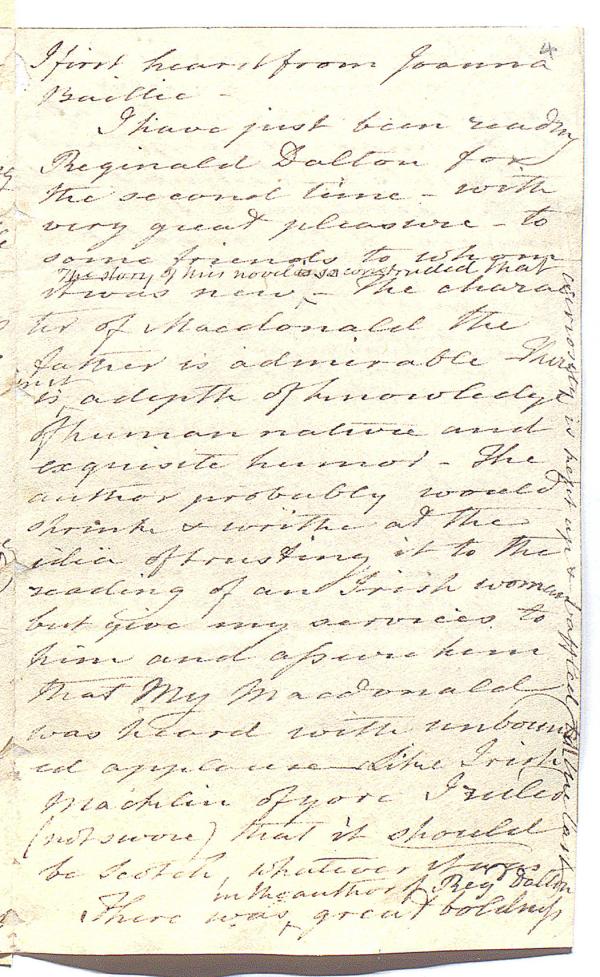 4
I first heard from Joanna
Baillie -
I have just been reading
Reginald Dalton for
the second time - with
very great pleasure - to
some friends to whom
The story of his novel is so constructed that
it was new - The charac
ter of Macdonald the
father is admirable - There
in it
is a depth of knowledge
of human nature and
exquisite humor - The
author probably would
shrink & writhe at the
idea of trusting it to the
reading of an Irish woman
but give my services to
him and assure him
that My Macdonald
was heard with unbound
ed applause - Like Irish
Macklin of yore I ruled
(not swore) that it should
be Scotch, whatever it was
in the author of Reg Dalton
There was great boldness
curiosity is kept up & baffled till the last